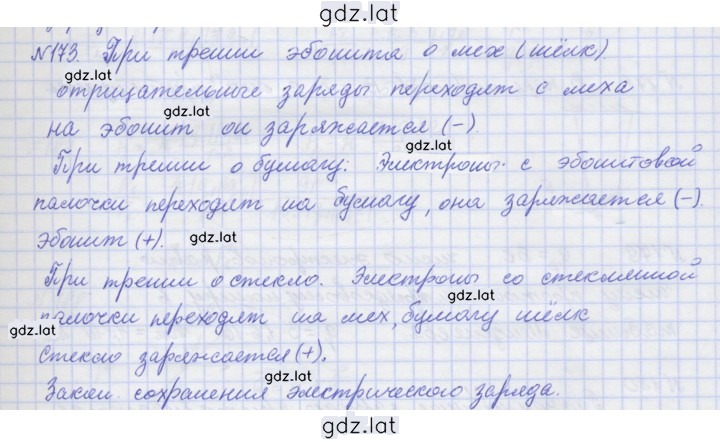 gdz.lat
№173. При трении эбонита о мех (шёлк).
gdz.lat
отрицательные заряды переходят с меха
gdz.lat
на эбонит он заряжается (-).
gdz.lat
При трении о бумагу: Электроны с эбонитовой
палочки переходят на бумагу, она заряжается (-).
эбонит (+). gdz.lat
При трении о стекло. Электроны со стеклянной
gdz.lat
gdz.lat палочки переходят на мех, бумагу шёлк
стекло заряжается (+).
gdz.lat
Закон сохранения электрического заряда.
gdz.lat